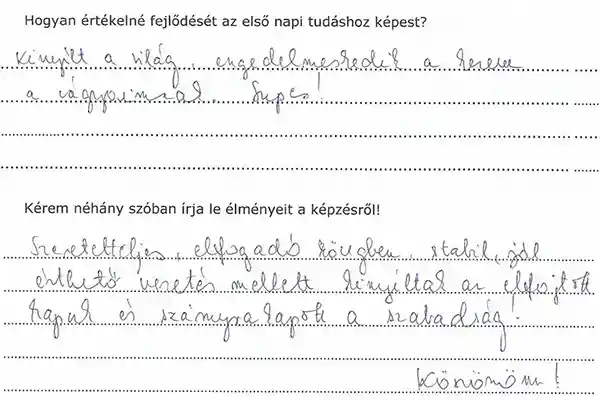 Hogyan értékelné fejlődését az első napi tudáshoz képest?
Kinyílt a világ, engedelmeskedik a kezem
a vágyaimnak. Szuper!
Kérem néhány szóban írja le élményeit a képzésről!
Szeretetteljes, elfogadó közegben, stabil, jól
érthető vezetés mellett kinyíltak az elfojtott
kapuk és szárnyra kapott a szabadság!
Köszönöm!